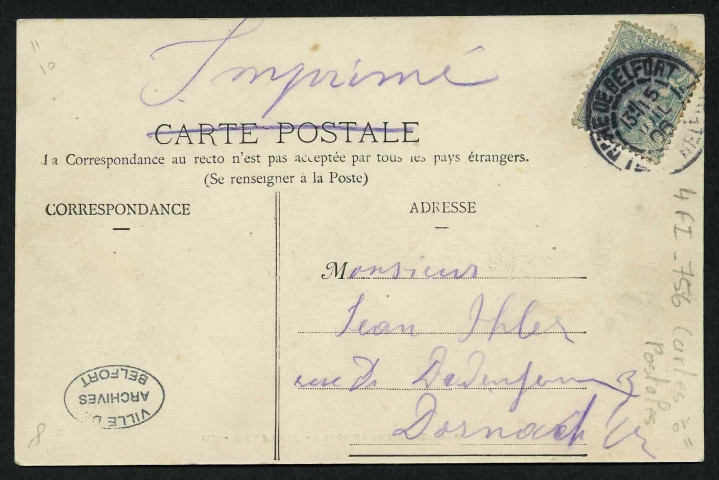 11
10
Imprimé
CARTE POSTALE
La Correspondance au recto n'est pas acceptée par tous les pays étrangers.
(Se renseigner à la Poste)
CORRESPONDANCE
ADRESSE
Monsieur
Jean Ihler
rue D.
Dornach
GARE DE BELFORT
4 FI - 756 Cartes
Postales
VILLE DE
ARCHIVES
BELFORT
8